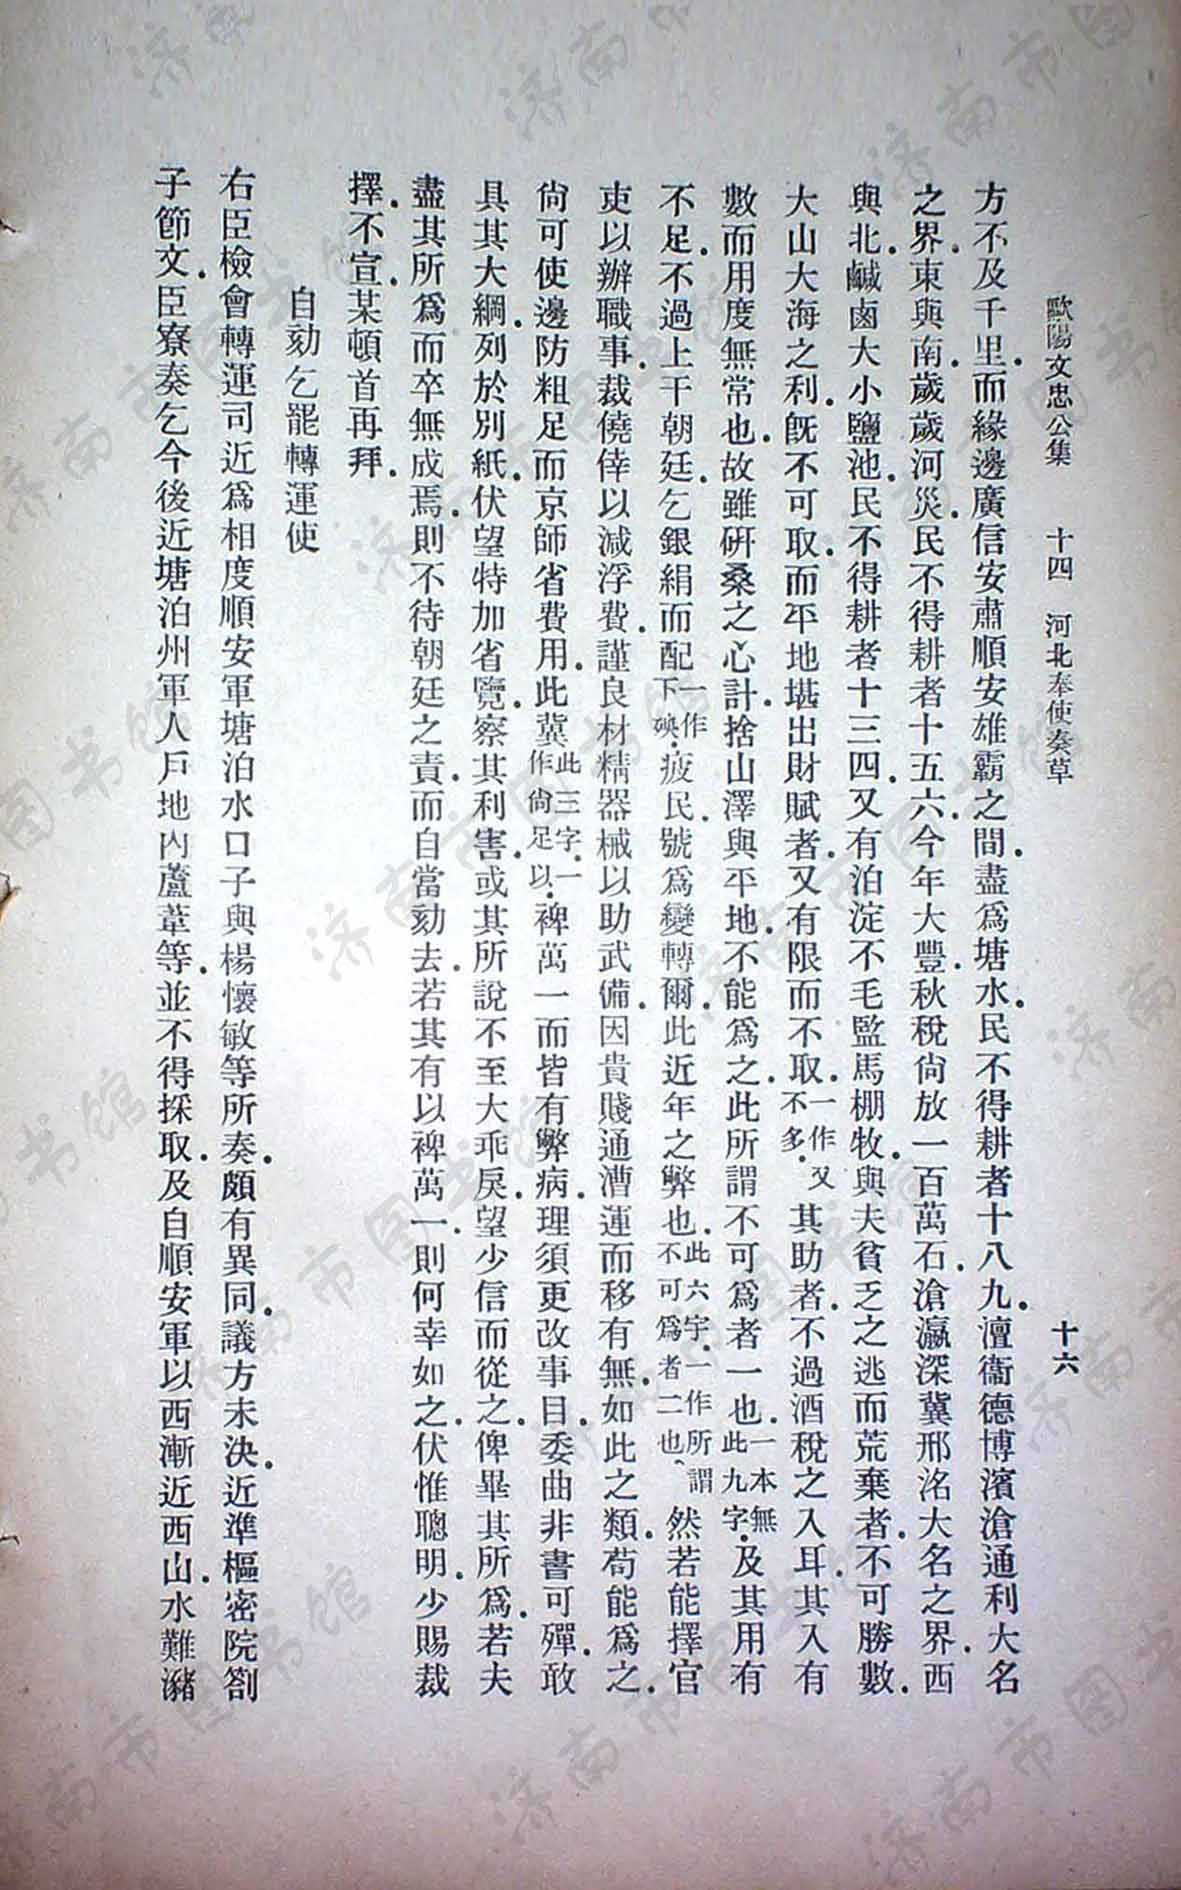 歐陽文忠公集　十四　河北奉使奏草　十六
方不及千里.而緣邊廣信安肅順安雄霸之間.盡爲塘水.民不得耕者十八九.澶衞德博濱滄通利大名
之界.東與南歲歲河災.民不得耕者十五六.今年大豐.秋稅尙放一百萬石.滄瀛深冀邢洺大名之界.西
與北.鹹鹵大小鹽池.民不得耕者十三四.又有泊淀不毛監馬棚牧.與夫貧乏之逃而荒棄者.不可勝數.
大山大海之利.旣不可取.而平地堪出財賦者.又有限而不取.一作又不多.其助者.不過酒稅之入耳.其入有
數而用度無常也.故雖硏桑之心計.捨山澤與平地.不能爲之.此所謂不可爲者一也.一本無此九字.及其用有
不足.不過上干朝廷.乞銀絹而配一作下殃.疲民.號爲變轉爾.此近年之弊也.此六字.一作所謂不可爲者二也.然若能擇官
吏以辦職事.裁僥倖以減浮費.謹良材精器械以助武備.因貴賤通漕運而移有無.如此之類.苟能爲之.
尙可使邊防粗足而京師省費用.此冀此三字.一作尙足以.裨萬一而皆有弊病.理須更改事目.委曲非書可殫.敢
具其大綱.列於別紙.伏望特加省覽.察其利害.或其所說不至大乖戾.望少信而從之.俾畢其所爲.若夫
盡其所爲而卒無成焉.則不待朝廷之責.而自當劾去.若其有以裨萬一.則何幸如之.伏惟聰明.少賜裁
擇.不宣.某頓首再拜.
自劾乞罷轉運使
右臣檢會轉運司近爲相度順安軍塘泊水口子與楊懷敏等所奏.頗有異同.議方未決.近準樞密院劄
子節文.臣寮奏乞今後近塘泊州軍人戶地內蘆葦等.並不得採取.及自順安軍以西漸近西山.水難瀦